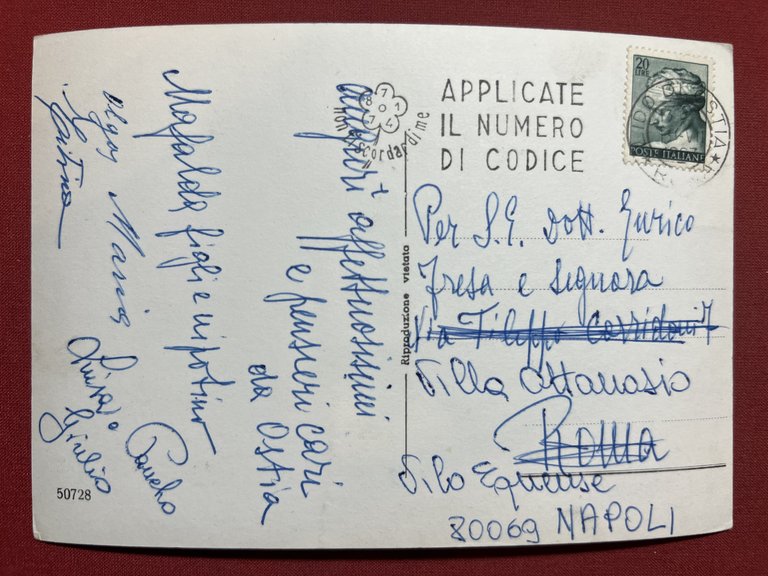 Auguri affettuosissimi
e pensieri cari
da Ostia
Mafalda figli e nipotino
Olga Maria
Cristina
Giulio
50728
Riproduzione vietata
non ti scordar di me
APPLICATE
IL NUMERO
DI CODICE
20
LIRE
POSTE ITALIANE
OSTIA
Per S.E. Dott. Enrico
Fresa e Signora
Via Filippo Corridoni 7
Villa Attanasio
Roma
Vico Equense
80069 NAPOLI